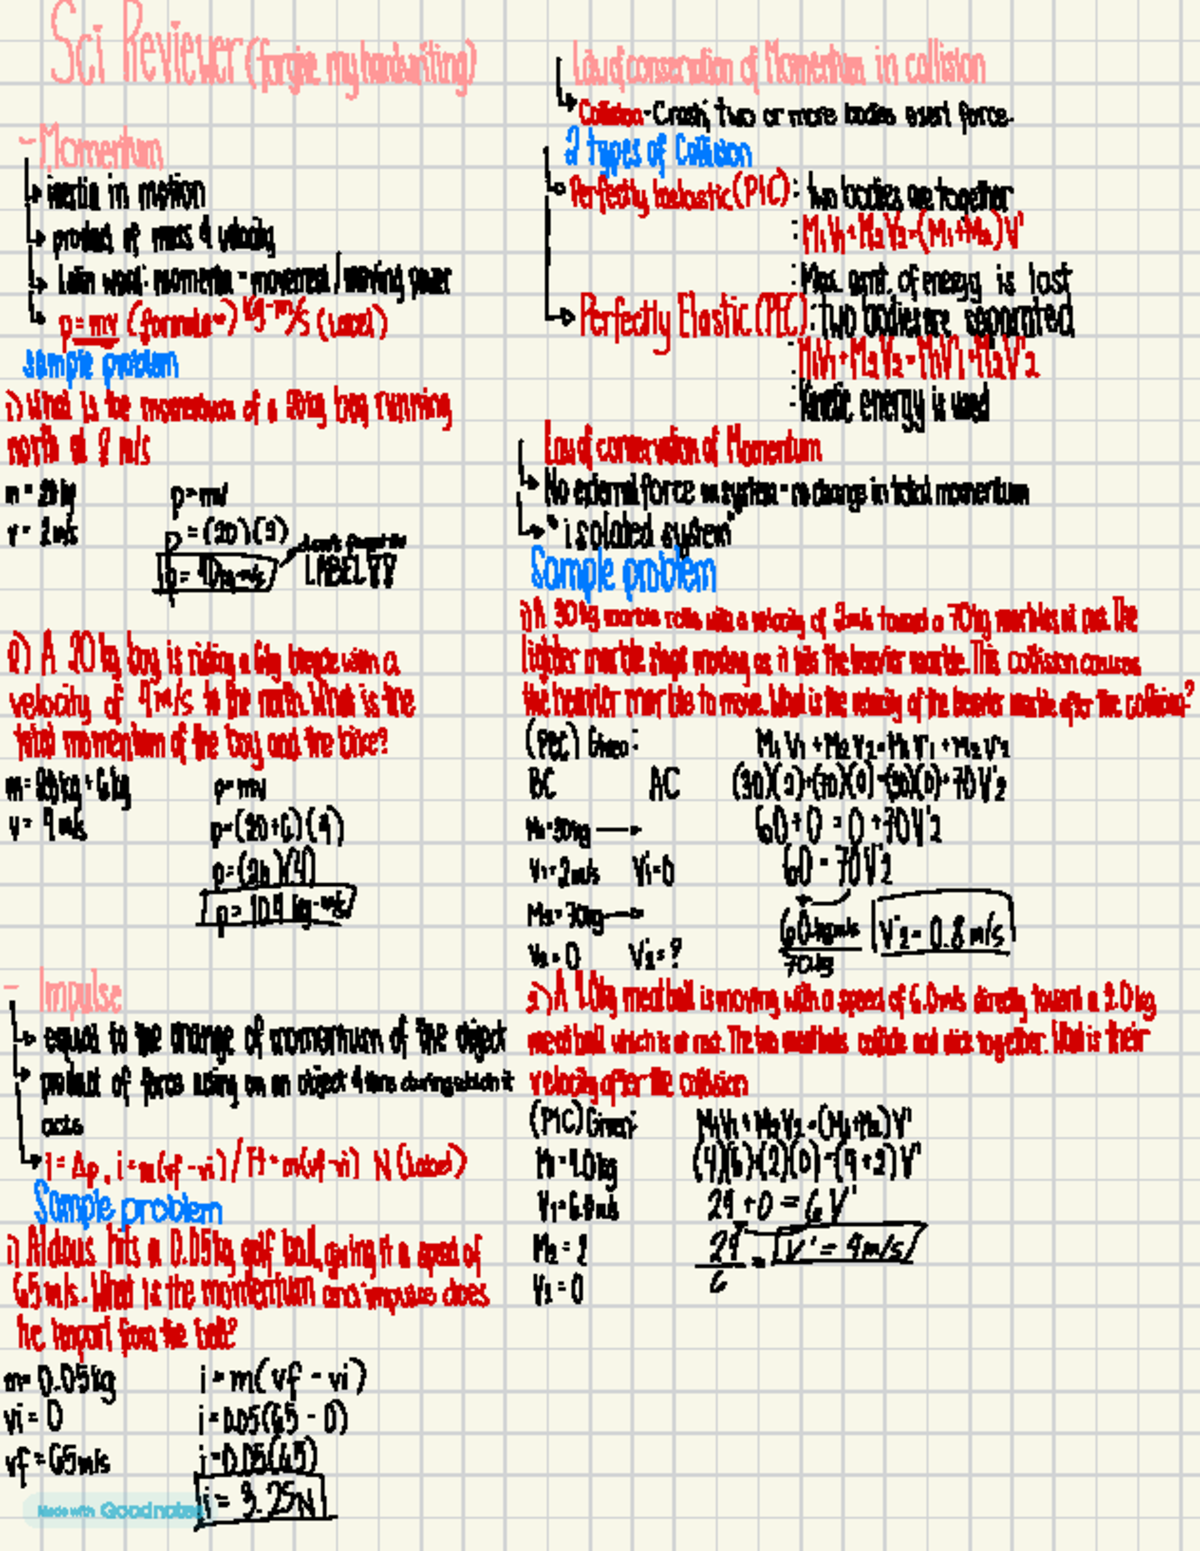 Sci Reviewer (forgive my handwriting)
- Momentum
inertia in motion
product of mass & velocity
Latin word: momenta - movement / moving power
p=mv (formula) kg-m/s (Label)
Sample problem
1) What is the momentum of a 20kg boy running
north at 2 m/s
m = 20 kg p=mv
v = 2m/s p = (20)(2)
p = 40kg-m/s don't forget the LABEL!!
2) A 20 kg boy is riding a 6kg bicycle with a
velocity of 4m/s to the north. What is the
total momentum of the boy and the bike?
m= 20kg + 6kg p=mv
v= 4m/s p=(20+6)(4)
p=(26)(4)
p= 104 kg-m/s
- Impulse
equal to the change of momentum of the object
product of force acting on an object & time during which it
acts
i = Δp, i=m(vf-vi) / Ft=m(vf-vi) N (Label)
Sample problem
1) Aldous hits a 0.05kg golf ball, giving it a speed of
65m/s. What is the momentum and impulse does
he impart from the ball?
m= 0.05kg i = m(vf - vi)
vi = 0 i = 0.05(65 - 0)
vf = 65m/s i=0.05(65)
i = 3.25N
Made with Goodnotes
Law of conservation of Momentum in collision
Collision - Crash, two or more bodies exert force.
2 types of Collision
Perfectly Inelastic (PIC): two bodies are together
: M1V1+M2V2=(M1+M2)V'
: Max. amt. of energy is lost
Perfectly Elastic (PEC): Two bodies are separated
: M1V1+M2V2=M1V'1+M2V'2
: Kinetic energy is used
Law of conservation of Momentum
No external force on system - no change in total momentum
"isolated system"
Sample problem
1) A 30kg marble rolls with a velocity of 2m/s toward a 70kg marble at rest. The
lighter marble stops moving as it hits the heavier marble. This collision causes
the heavier marble to move. What is the velocity of the heavier marble after the collision?
(PEC) Given: M1V1+M2V2=M1V'1+M2V'2
BC AC (30)(2)+(70)(0)=(30)(0)+70V'2
M1=30kg 60+0 = 0+70V'2
V1=2m/s V1=0 60 = 70V'2
M2=70kg 60kgm/s / 70kg V'2 = 0.8m/s
V2=0 V'2=?
2) A 4.0kg meatball is moving with a speed of 6.0m/s directly toward a 2.0kg
meatball which is at rest. The two meatballs collide and stick together. What is their
velocity after the collision
(PIC) Given: M1V1+M2V2=(M1+M2)V'
M1=4.0kg (4)(6)+(2)(0)=(4+2)V'
V1=6.0m/s 24+0 = 6V'
M2 = 2 24/6 = V' = 4m/s
V2 = 0